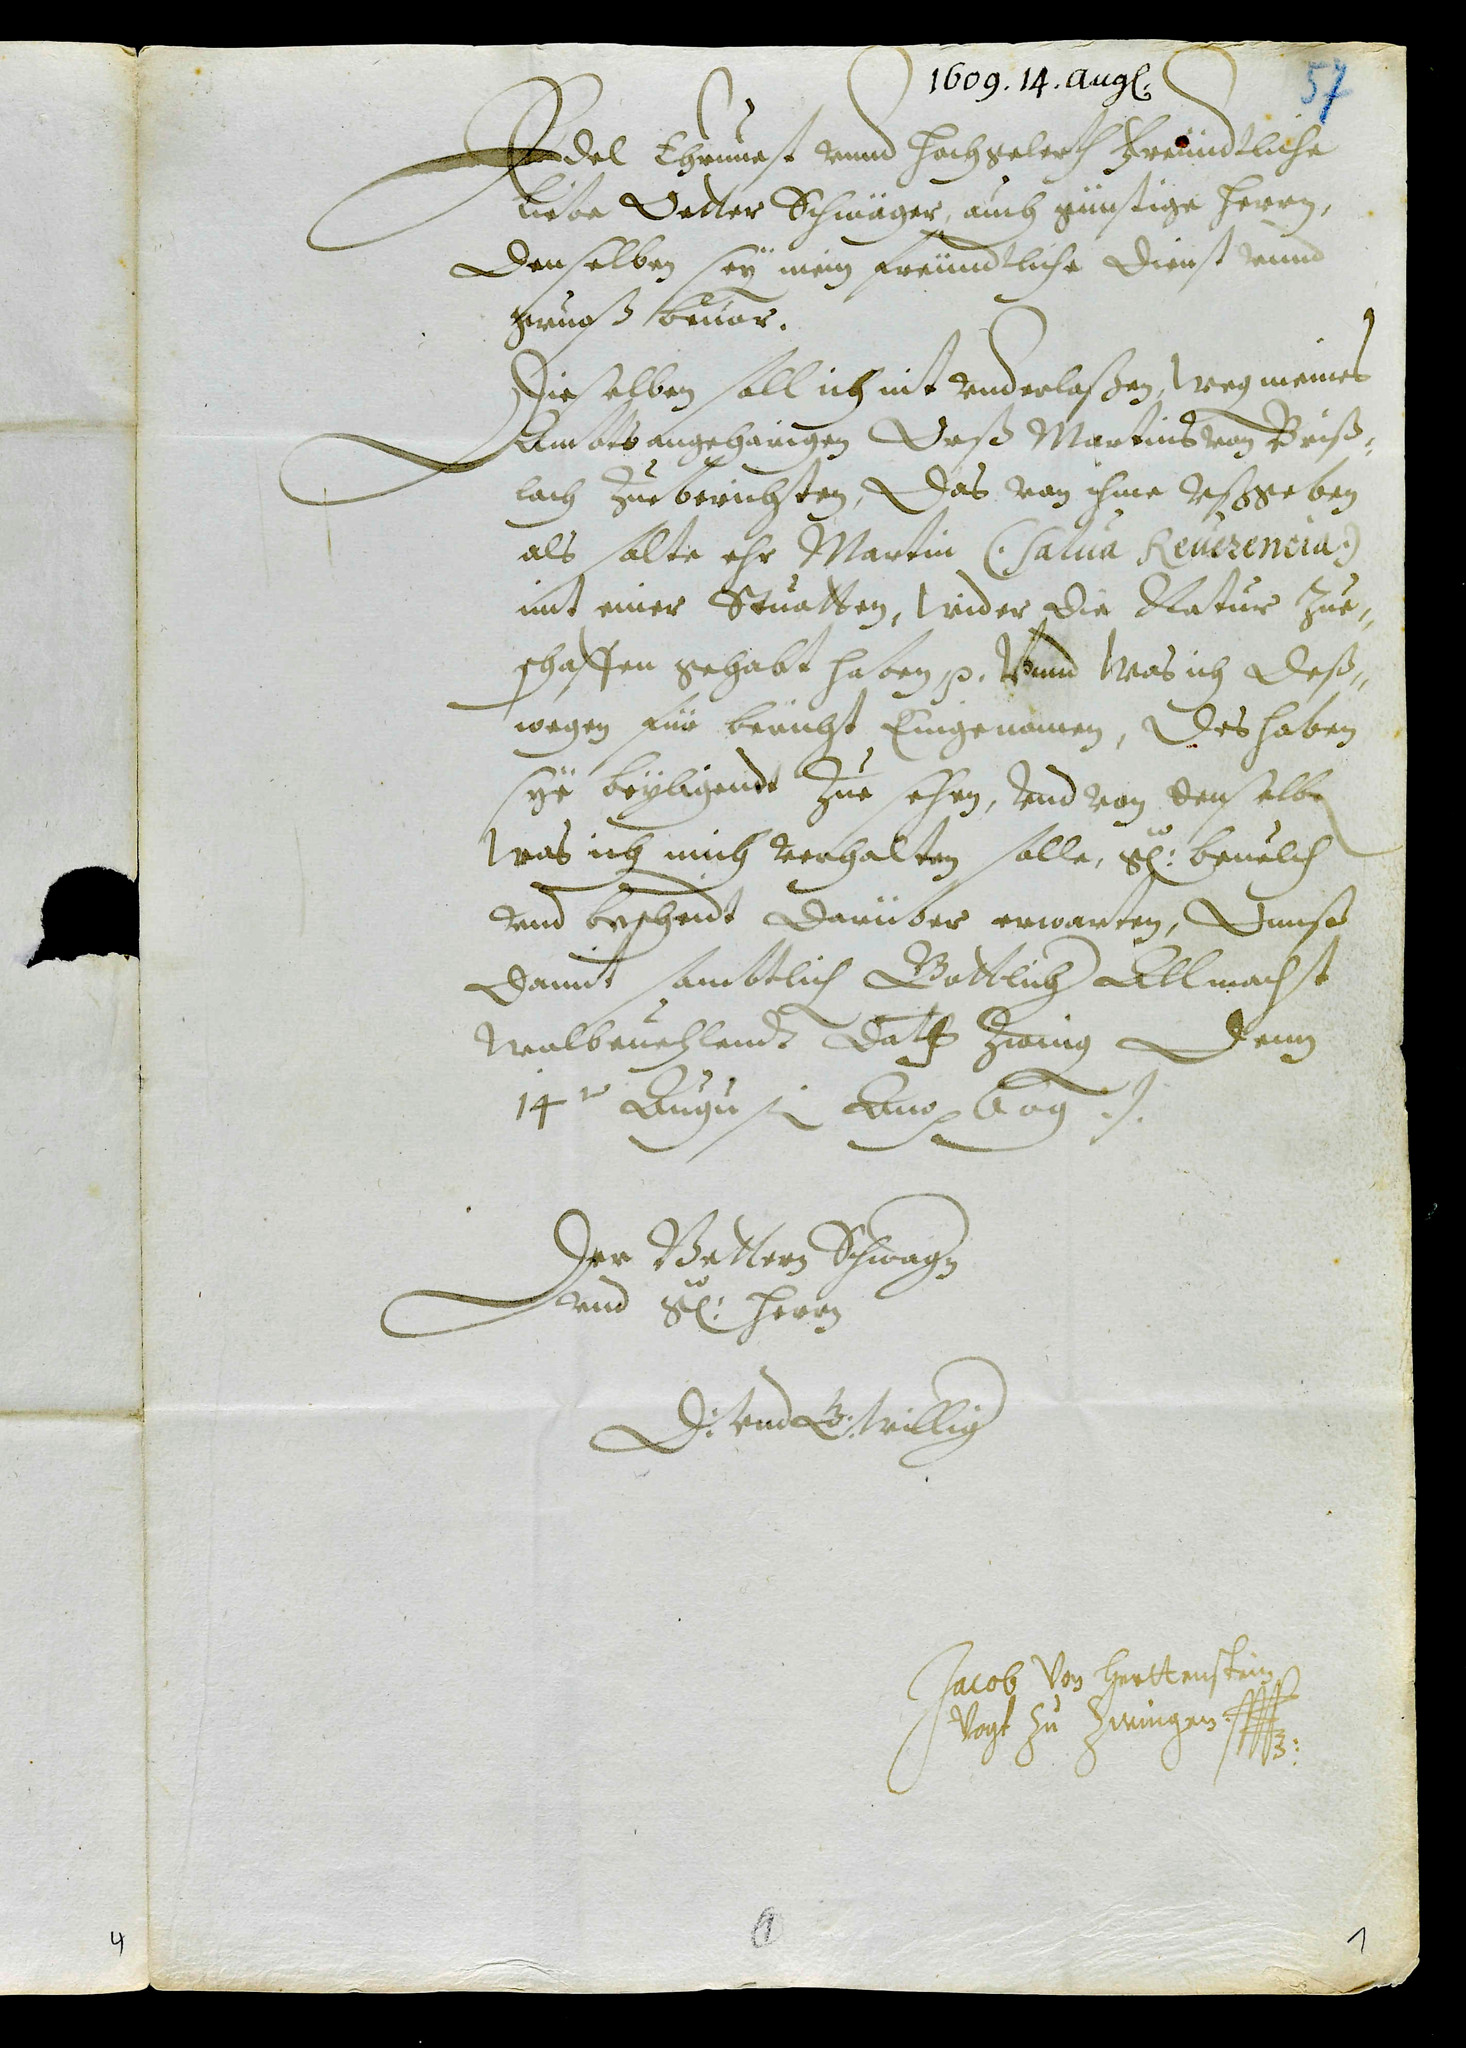 1609. 14. Augs.
57
Edel Ehrnuest vnnd hochgelerth Freündtliche
liebe Vetter Schwäger, auch günstige herrn,
Denselben seÿ mein freündtliche Dienst vnnd
grues beuor.
Dieselben soll ich nit vnderlaßen, wegen meines
Ambts angehörigen Urß Martins von Briß,,
lach Zue berichten, Das von ihme vßgeben
als solte ehr Martin (: salua Reuerencia :)
mit einer Stuotten, wider die Natur Zue,,
schaffen gehabt haben p. Vnnd was ich deß,,
wegen für bericht Eingenomen, Des haben
sÿe beÿligendt Zue sehen, vnd von denselben
was ich mich verhalten solle, gl: beuelch
vnd bescheidt darüber erwarten, Vnnß
damit sambtlich Göttlich Allmacht
wolbeuehlendt Datt Zwing Denn
14ten Augusti Ano p 609 ./.
Der Vettern Schwägn
vnd gl: herrn
D: vnd G: willig
Jacob von Herttenstein
Vogt zu Zwingen
4
1
1